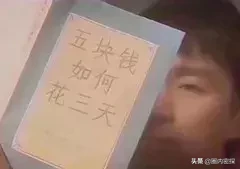 五块钱
如何
花三天
头条 @圈内密探